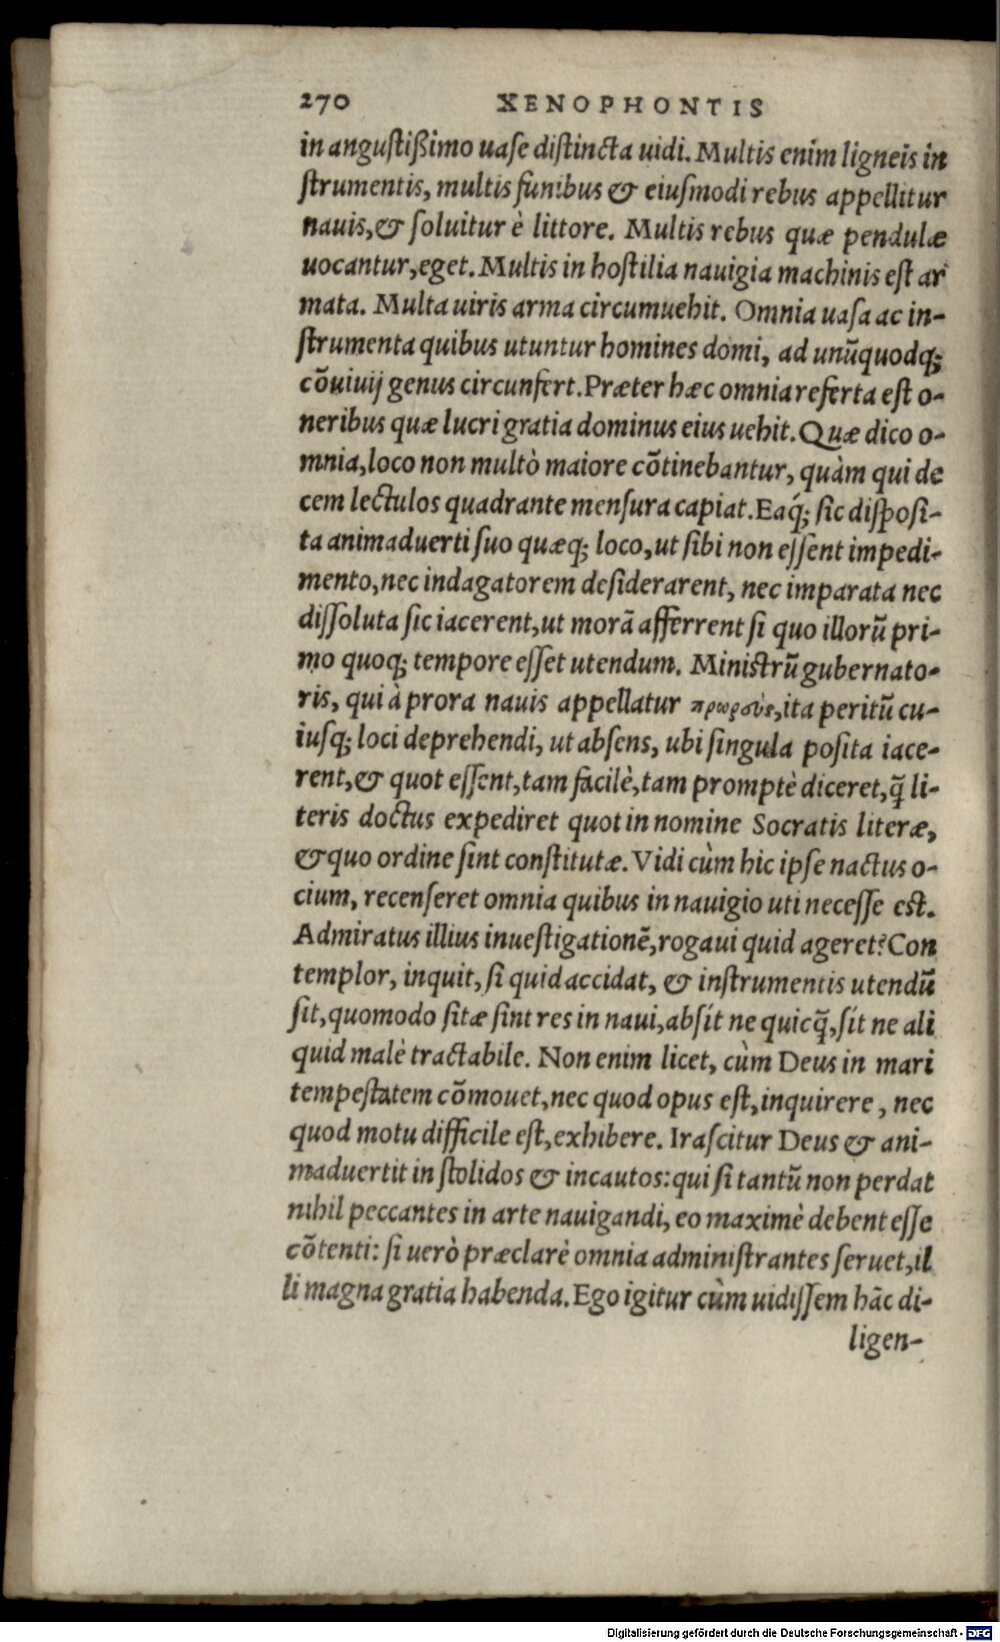 270 XENOPHONTIS
in angustißimo uase distincta uidi. Multis enim ligneis in
strumentis, multis funibus & eiusmodi rebus appellitur
nauis, & soluitur è littore. Multis rebus quæ pendulæ
uocantur, eget. Multis in hostilia nauigia machinis est ar
mata. Multa uiris arma circumuehit. Omnia uasa ac in-
strumenta quibus utuntur homines domi, ad unūquodq;
cōuiuij genus circunfert. Præter hæc omnia referta est o-
neribus quæ lucri gratia dominus eius uehit. Quæ dico o-
mnia, loco non multò maiore cōtinebantur, quàm qui de
cem lectulos quadrante mensura capiat. Eaq́; sic disposi-
ta animaduerti suo quæq; loco, ut sibi non essent impedi-
mento, nec indagatorem desiderarent, nec imparata nec
dissoluta sic iacerent, ut morā afferrent si quo illorū pri-
mo quoq; tempore esset utendum. Ministrū gubernato-
ris, qui à prora nauis appellatur πρωρεὺς, ita peritū cu-
iusq; loci deprehendi, ut absens, ubi singula posita iace-
rent, & quot essent, tam facilè, tam promptè diceret, q̄ li-
teris doctus expediret quot in nomine Socratis literæ,
& quo ordine sint constitutæ. Vidi cùm hic ipse nactus o-
cium, recenseret omnia quibus in nauigio uti necesse est.
Admiratus illius inuestigationē, rogaui quid ageret? Con
templor, inquit, si quid accidat, & instrumentis utendū
sit, quomodo sitæ sint res in naui, absit ne quicq̄, sit ne ali
quid malè tractabile. Non enim licet, cùm Deus in mari
tempestatem cōmouet, nec quod opus est, inquirere, nec
quod motu difficile est, exhibere. Irascitur Deus & ani-
maduertit in stolidos & incautos: qui si tantū non perdat
nihil peccantes in arte nauigandi, eo maximè debent esse
cōtenti: si uerò præclarè omnia administrantes seruet, il
li magna gratia habenda. Ego igitur cùm uidissem hāc di-
ligen-
Digitalisierung gefördert durch die Deutsche Forschungsgemeinschaft - DFG